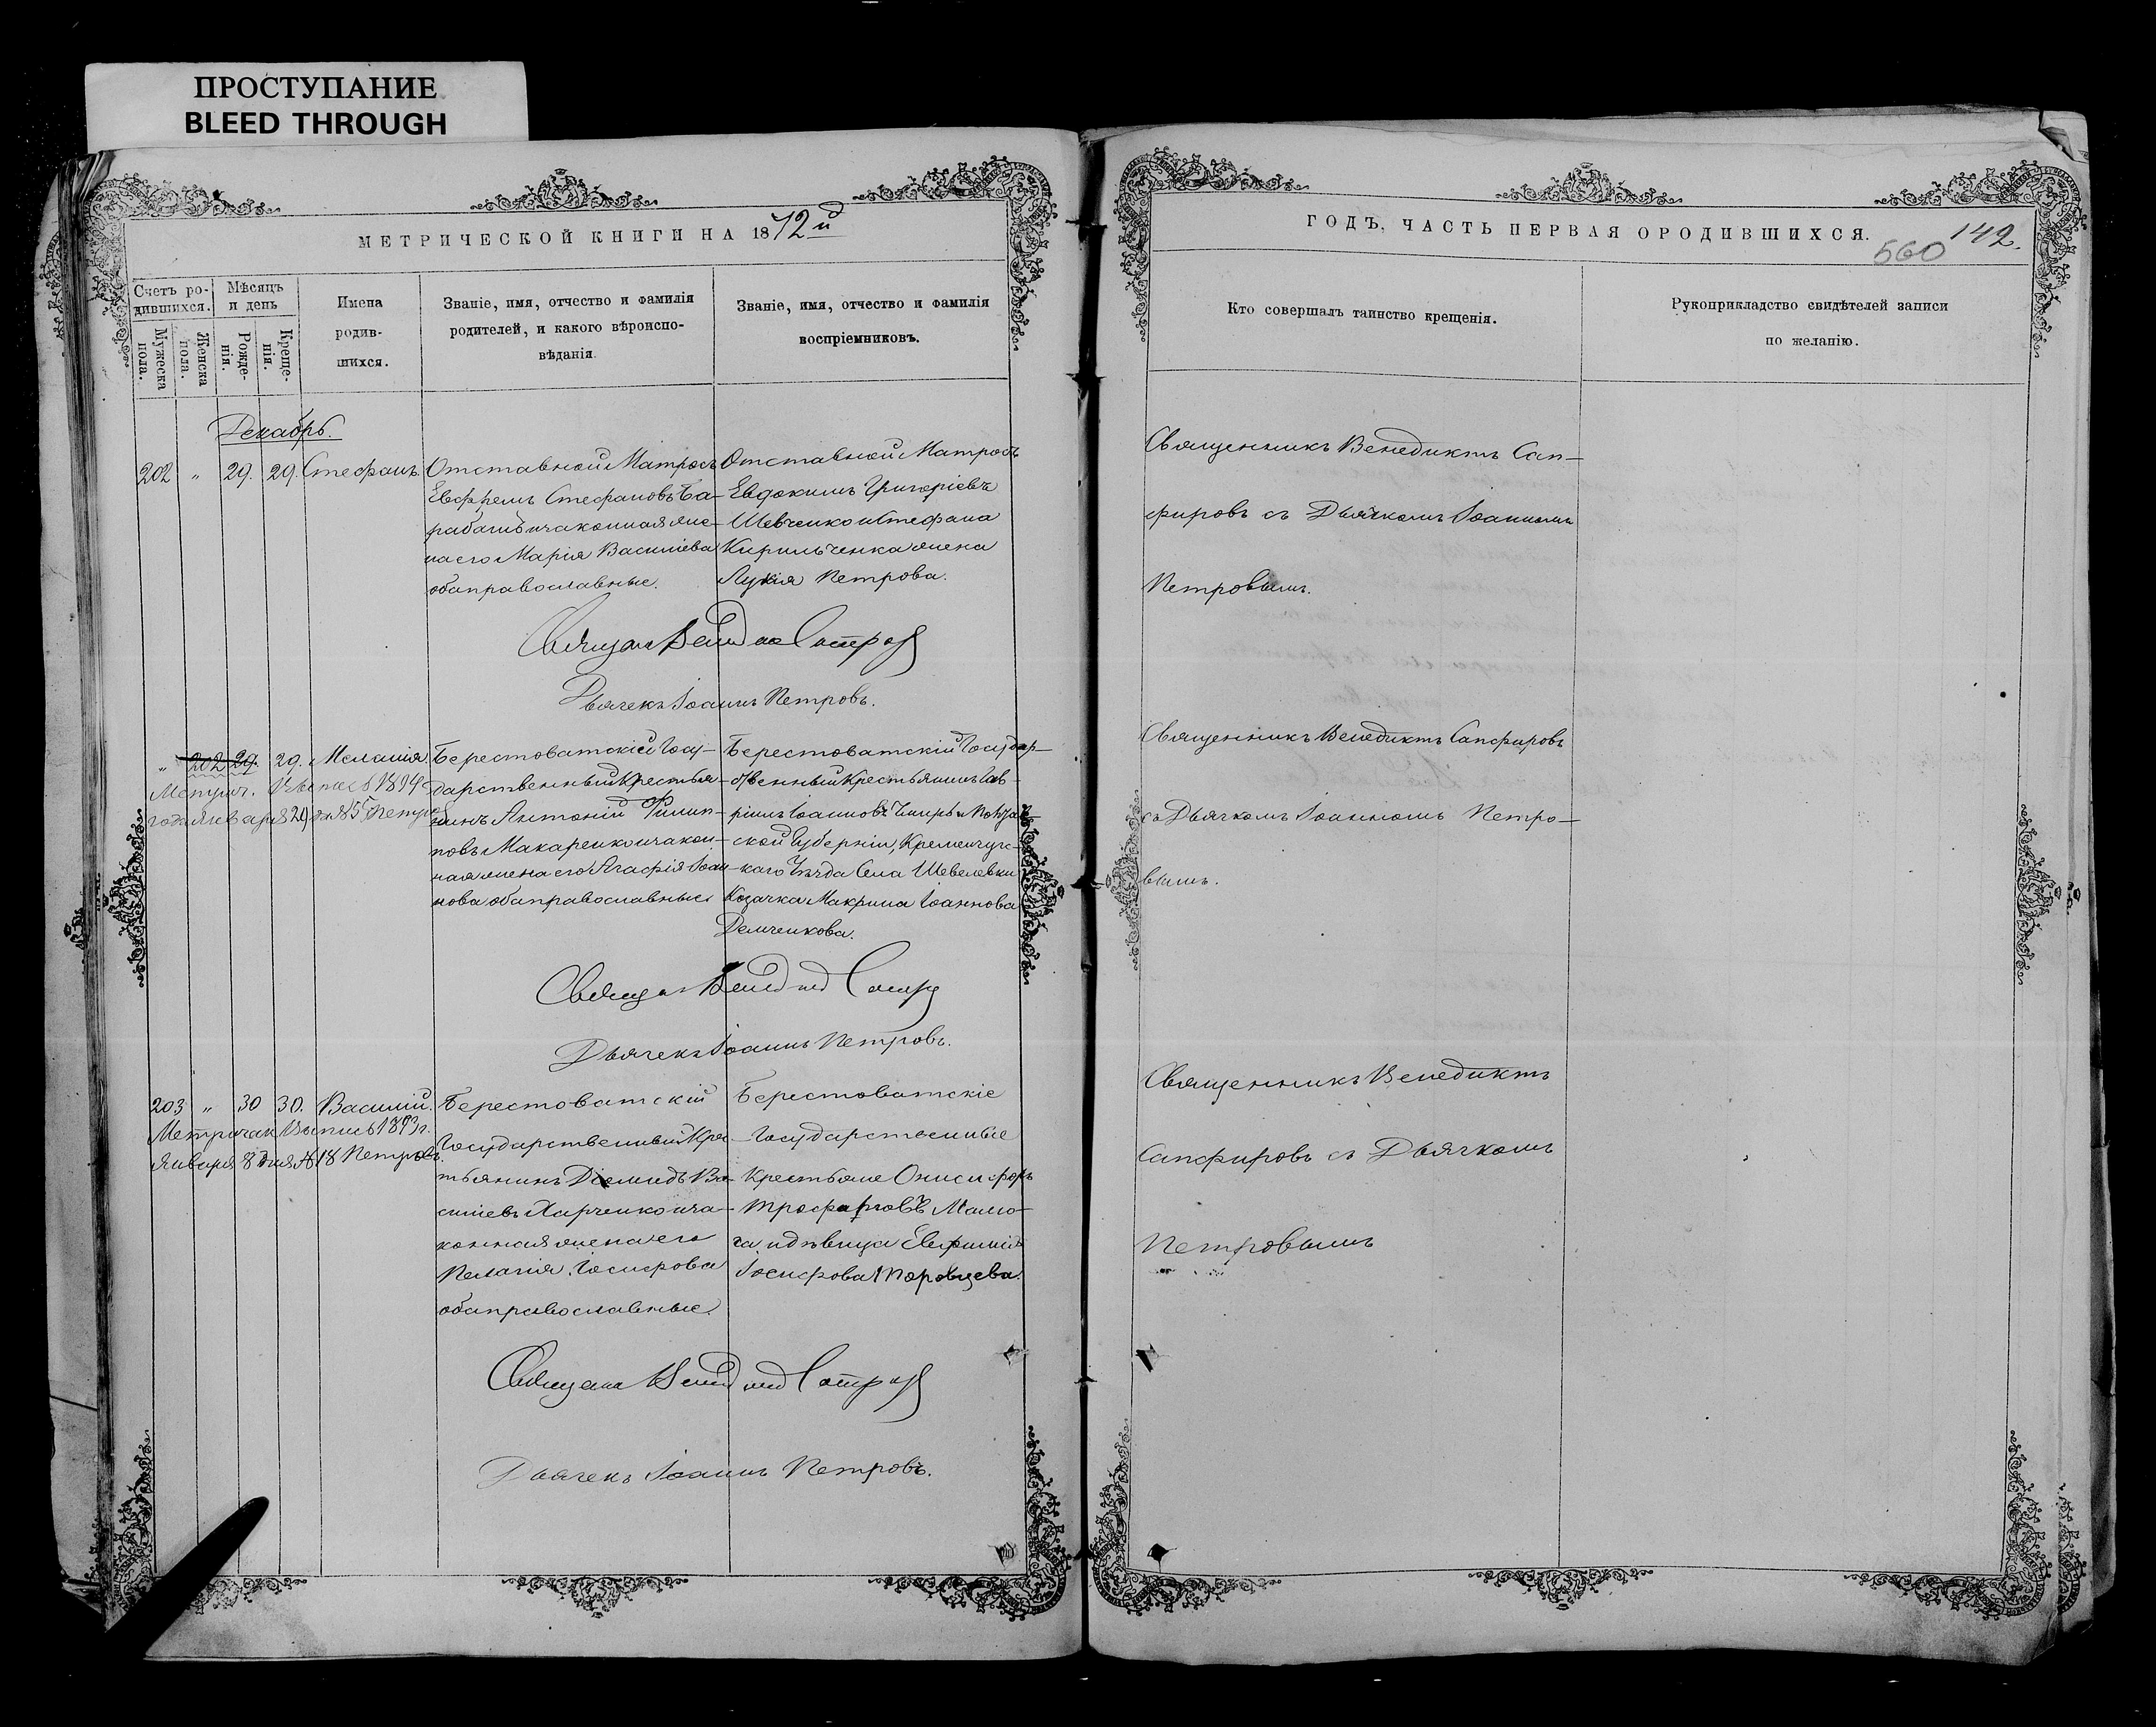 ПРОСТУПАНИЕ
BLEED THROUGH
МЕТРИЧЕСКОЙ КНИГИ НА 1872й
Счетъ ро-
дившихся.
Мужеска
пола.
Женска
пола.
Мѣсяцъ
и день
Рожде-
нія.
Креще-
нія.
Имена
родив-
шихся.
Званіе, имя, отчество и фамилія
родителей, и какого вѣроиспо-
вѣданія.
Званіе, имя, отчество и фамилія
воспріемниковъ.
Декабрь.
202 " 29. 29. Стефанъ
Отставной Матросъ
Евфремъ Стефановъ Ба-
рабашъ и законная же-
на его Марія Василіева
оба православные.
Отставной Матросъ
Евдокимъ Григоріевъ
Шевченко и Стефана
Кирильченка жена
Лукія Петрова.
Дьячекъ Іоаннъ Петровъ.
" 202 29. 29. Меланія
Метрич. Выпись 1894
года января 29 дня 85
Берестоватскій Госу-
дарственный Крестья-
нинъ Антоній Филип-
повъ Макаренко и закон-
ная жена его Агафія Іоан-
нова оба православные
Берестоватскій Государ-
ственный Крестьянинъ Гав-
ріилъ Іоанновъ и Полтав-
ской Губерніи, Кременчуг-
каго Уѣзда Села Шевелевки
Козачка Макрина Іоаннова
Демченкова.
Дьячекъ Іоаннъ Петровъ.
203 " 30 30. Василій.
Метрическ Выпись 1893 г.
Января 8 дня № 18 Петровъ
Берестоватскій
Государственный Крес-
тьянинъ Діомидъ Ва-
силіевъ Харченко и за-
конная жена его
Пелагія Іосифова
оба православные.
Берестоватскіе
Государственные
Крестьяне Онисифоръ
Трофимовъ
и дѣвица Евфимія
Іосифова
Дьячекъ Іоаннъ Петровъ.
ГОДЪ, ЧАСТЬ ПЕРВАЯ О РОДИВШИХСЯ.
560 142.
Кто совершалъ таинство крещенія.
Рукоприкладство свидѣтелей записи
по желанію.
Священникъ Венедиктъ Сап-
фировъ съ Дьячкомъ Іоанномъ
Петровымъ.
Священникъ Венедиктъ Сапфировъ
съ Дьячкомъ Іоанномъ Петро-
вымъ.
Священникъ Венедиктъ
Сапфировъ съ Дьячкомъ
Петровымъ